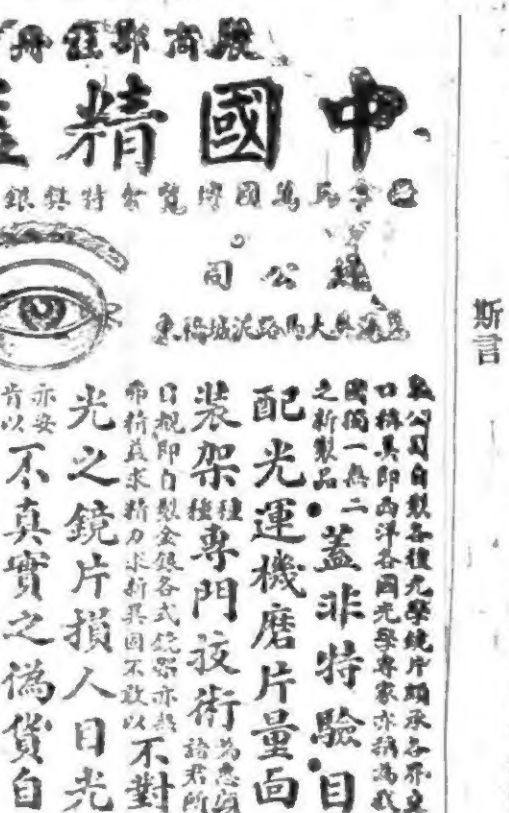 斯言
商部註冊
中國精
馬萬國博覽會特獎銀
公司
海英大馬路泥城橋東
敝公司自製各種光學鏡片頗承各界
口稱異即西洋各國光學專家亦稱為我
國獨一無二
之新製品●蓋非特驗●目
配光運機磨片量面
裝架種種專門技術為惠顧
諸君所
目覩即自製金銀各式鏡器亦無
弗精益求精力求新異固不敢以不對
光之鏡片損人目光
亦安
肯以不真實之偽貨自